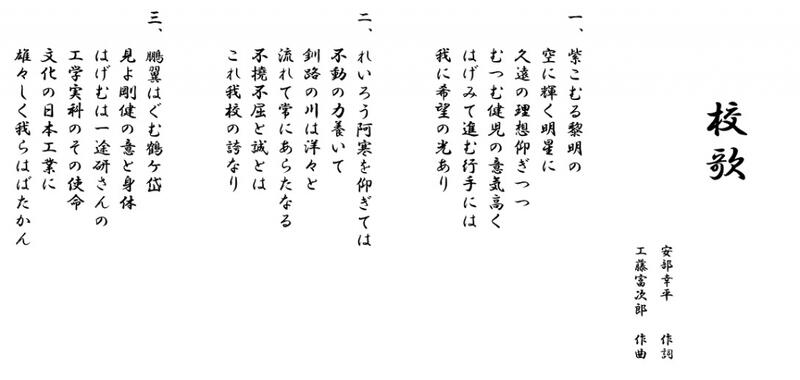 校歌
安部幸平 作詞
工藤富次郎 作曲
一、紫こむる黎明の
空に輝く明星に
久遠の理想仰ぎつつ
むつむ健児の意気高く
はげみて進む行手には
我に希望の光あり
二、れいろう阿寒を仰ぎては
不動の力養いて
釧路の川は洋々と
流れて常にあらたなる
不撓不屈と誠とは
これ我校の誇なり
三、鵬翼はぐむ鶴ケ岱
見よ剛健の意と身体
はげむは一途研さんの
工学実科のその使命
文化の日本工業に
雄々しく我らはばたかん